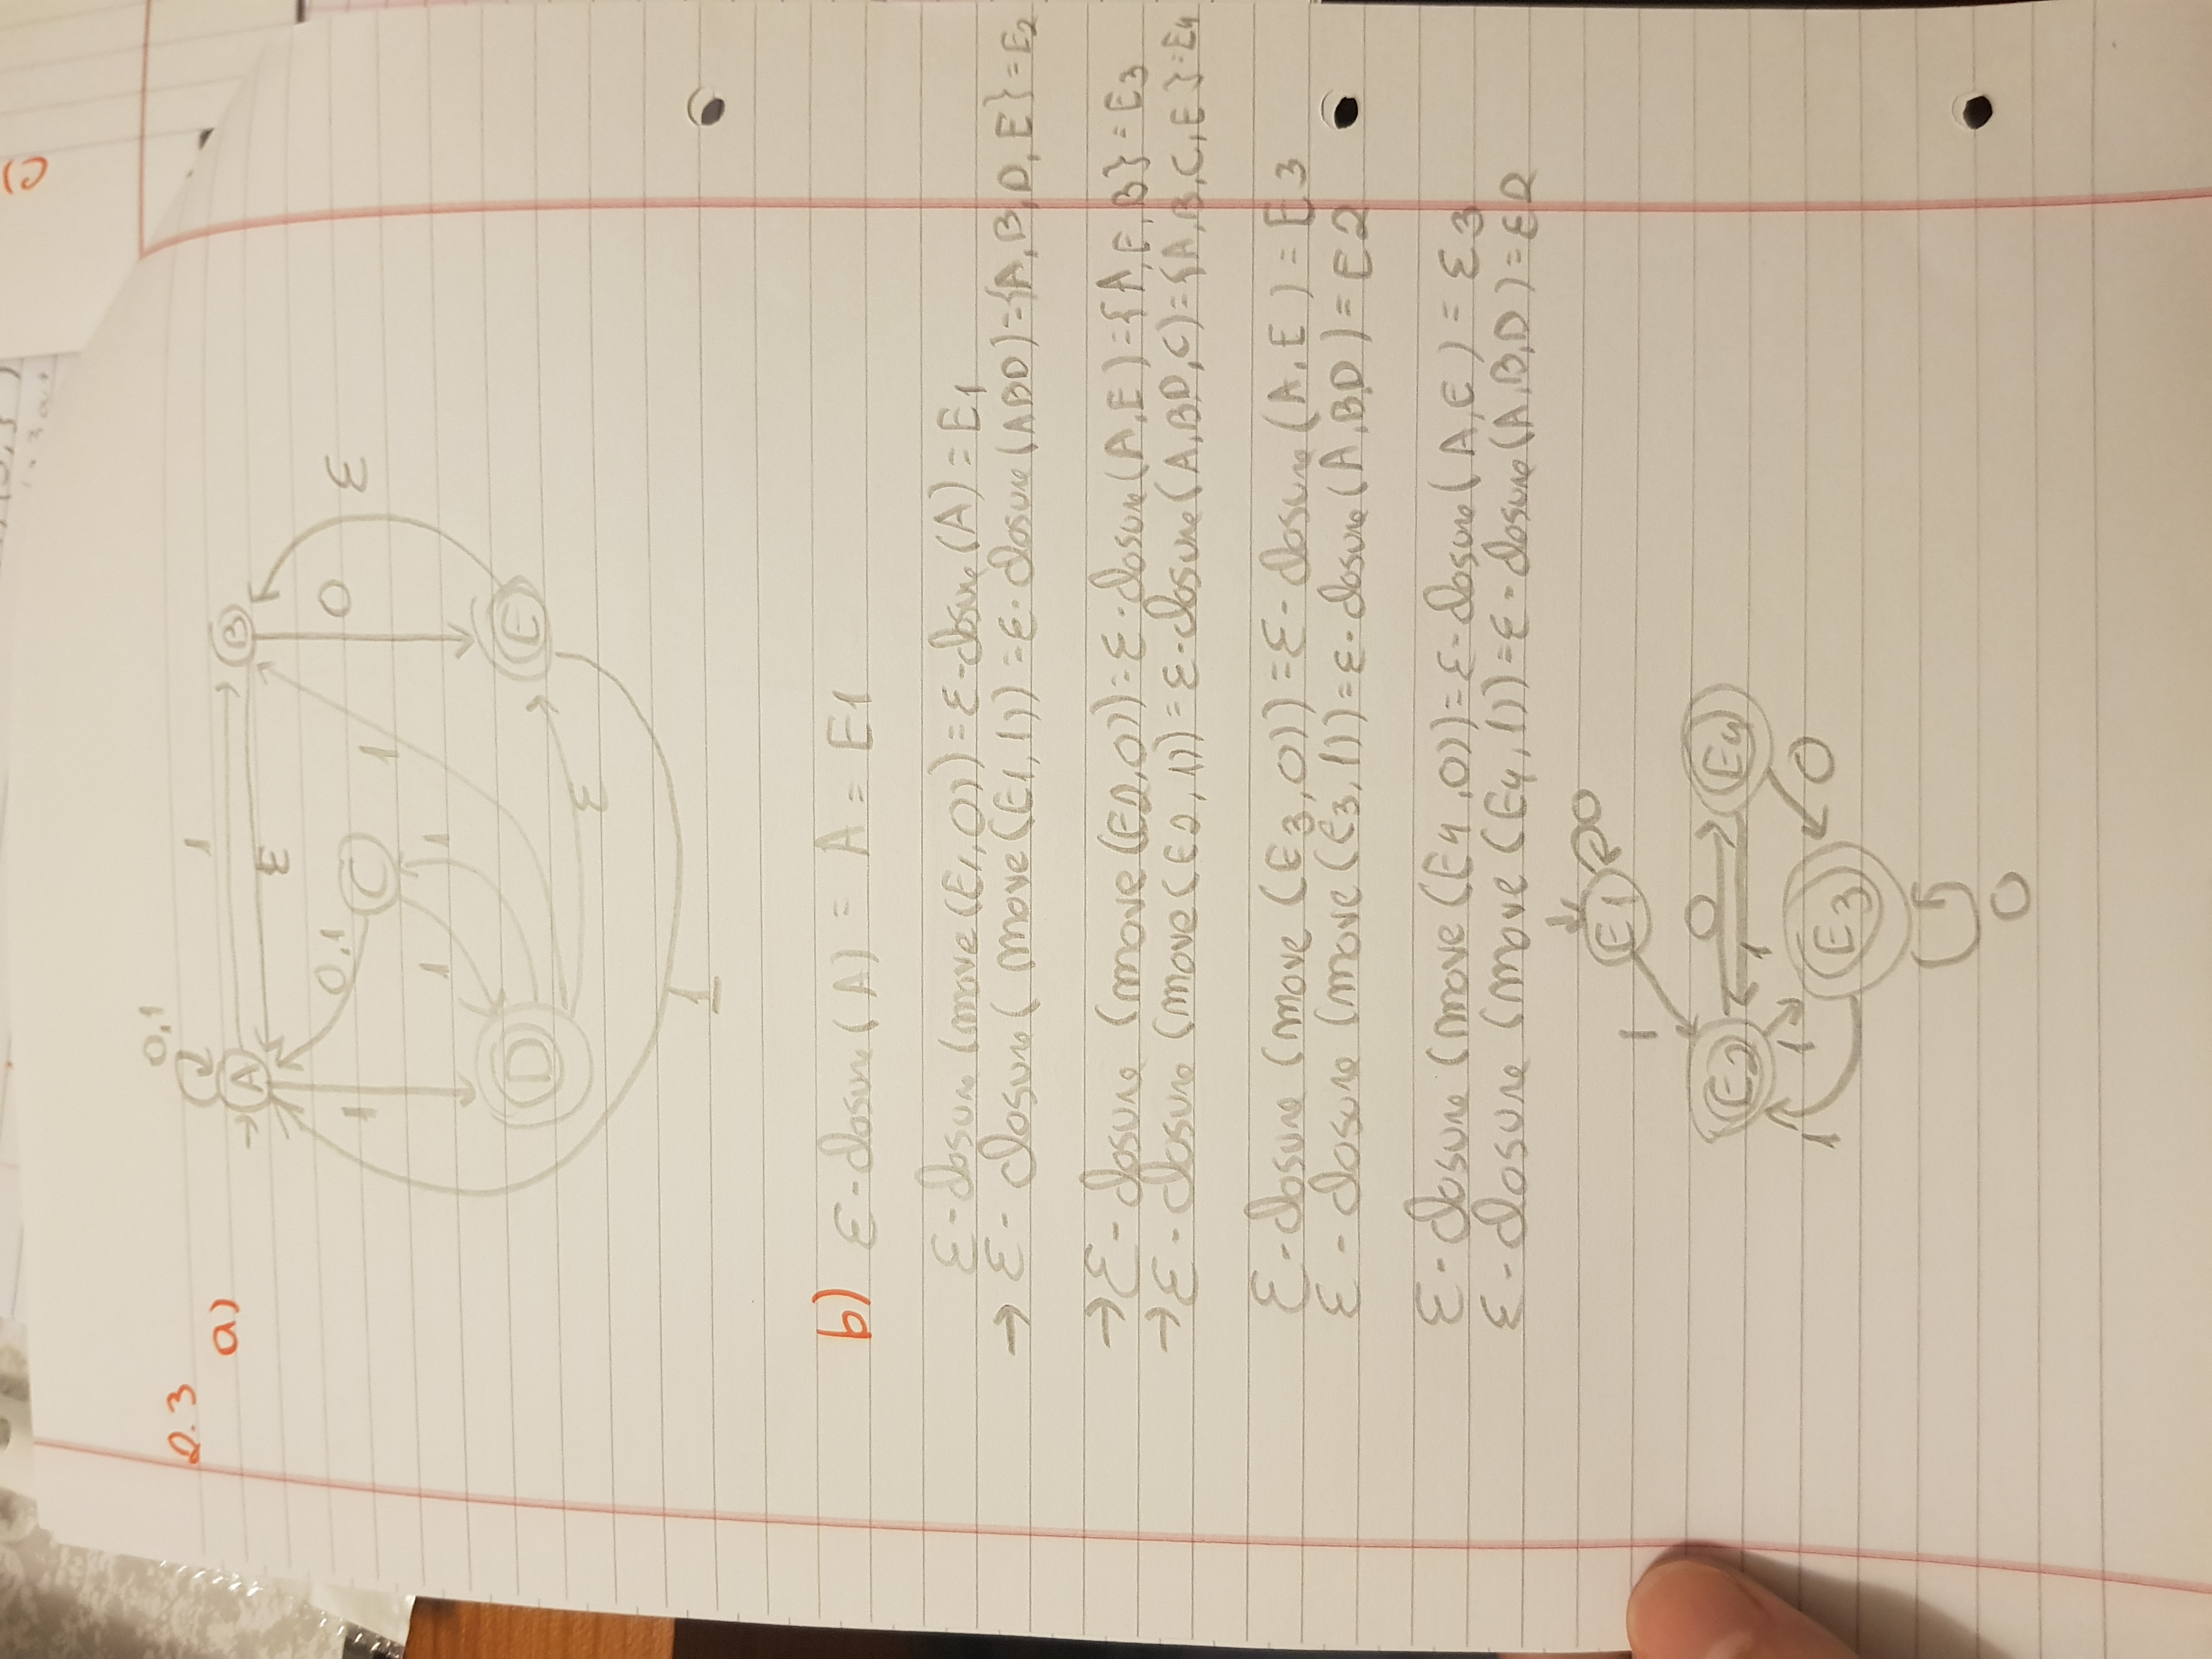 C)
2.3
a)
0,1
1
→ A
B
ε
0,1
C
1
1
0
ε
1
1
D
E
ε
1
b) ε-closure(A) = A = E1
ε-closure (move(E1,0)) = ε-closure(A) = E1
→ ε-closure( move(E1,1)) = ε-closure(ABD) = {A,B,D,E} = E2
→ ε-closure (move(E2,0)) = ε-closure(A,E) = {A,E,B} = E3
→ ε-closure (move(E2,1)) = ε-closure(A,B,D,C) = {A,B,C,E} = E4
ε-closure (move (E3,0)) = ε-closure(A,E) = E3
ε-closure (move(E3,1)) = ε-closure(A,B,D) = E2
ε-closure (move(E4,0)) = ε-closure(A,E) = E3
ε-closure (move (E4,1)) = ε-closure(A,B,D) = E2
E1 0
1
0
E2
E4
1
1
1
0
E3
0